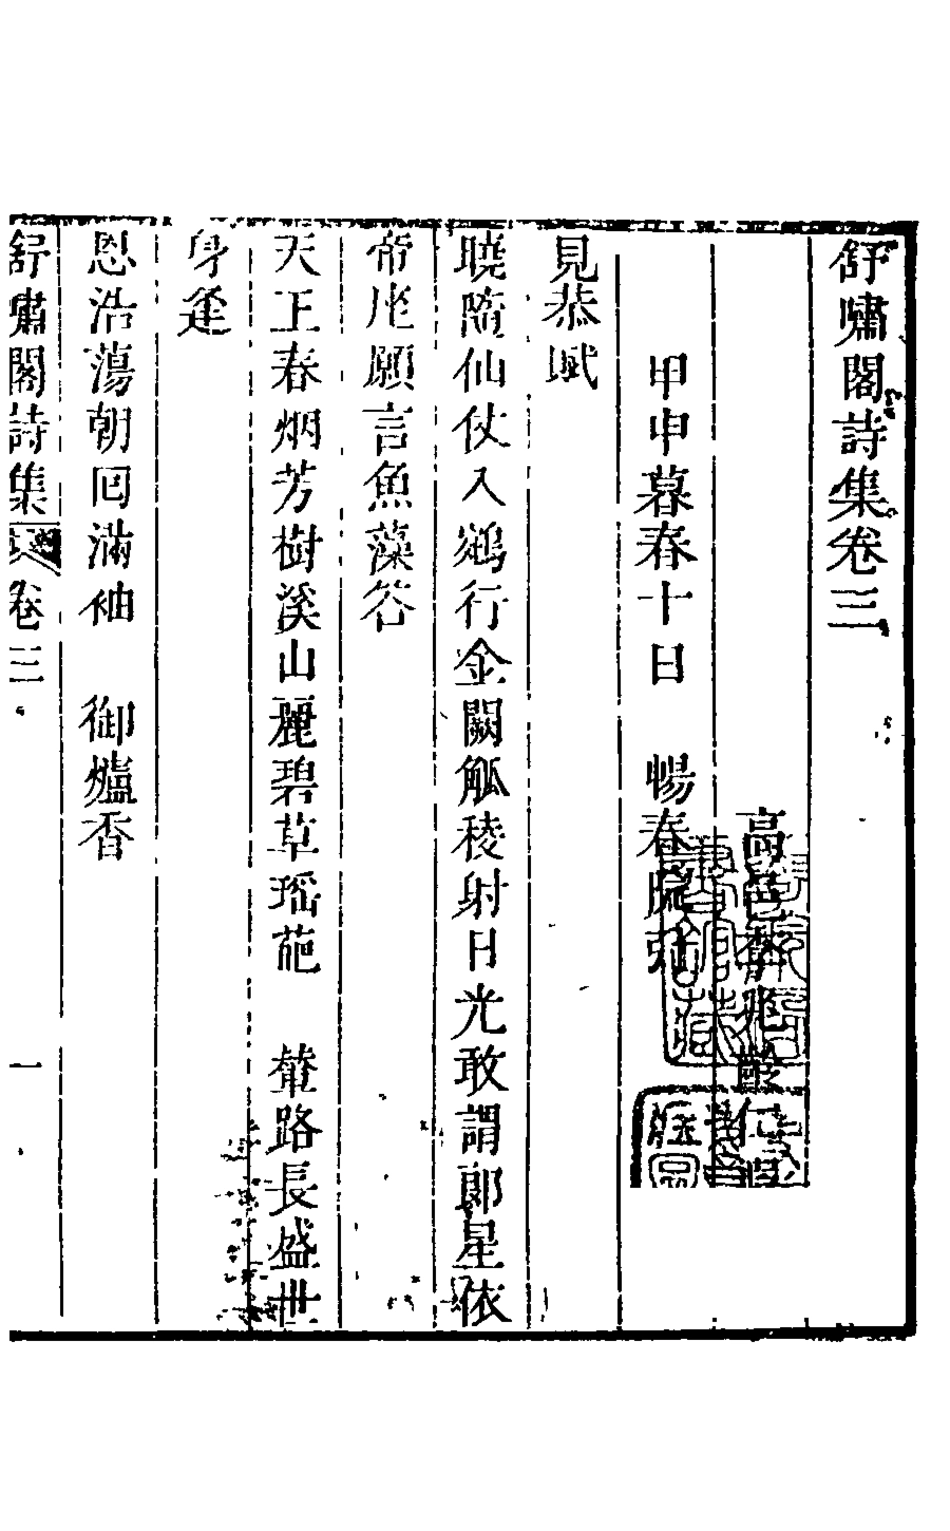 舒嘯閣詩集卷三
高邑李兆齡仁
甲申暮春十日　暢春
見恭賦
曉隨仙仗入鵷行金闕觚稜射日光敢謂郎星依
帝座願言魚藻答
天正春烟芳樹溪山麗碧草瑶葩　輦路長盛世
身逢
恩浩蕩朝回滿袖　御爐香
舒嘯閣詩集　卷三　一